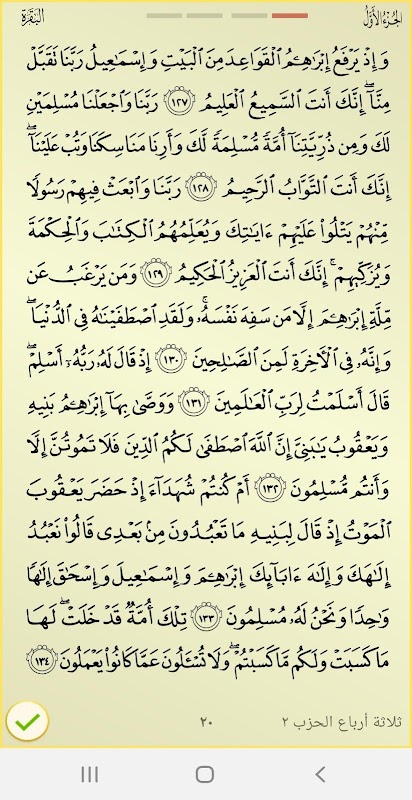 الجُزْءُ الأَوَّلُ
البَقَرَةِ
وَإِذْ يَرْفَعُ إِبْرَٰهِـۧمُ ٱلْقَوَاعِدَ مِنَ ٱلْبَيْتِ وَإِسْمَٰعِيلُ رَبَّنَا تَقَبَّلْ
مِنَّآ ۖ إِنَّكَ أَنتَ ٱلسَّمِيعُ ٱلْعَلِيمُ ١٢٧ رَبَّنَا وَٱجْعَلْنَا مُسْلِمَيْنِ
لَكَ وَمِن ذُرِّيَّتِنَآ أُمَّةً مُّسْلِمَةً لَّكَ وَأَرِنَا مَنَاسِكَنَا وَتُبْ عَلَيْنَآ ۖ
إِنَّكَ أَنتَ ٱلتَّوَّابُ ٱلرَّحِيمُ ١٢٨ رَبَّنَا وَٱبْعَثْ فِيهِمْ رَسُولًا
مِّنْهُمْ يَتْلُوا۟ عَلَيْهِمْ ءَايَٰتِكَ وَيُعَلِّمُهُمُ ٱلْكِتَٰبَ وَٱلْحِكْمَةَ
وَيُزَكِّيهِمْ ۚ إِنَّكَ أَنتَ ٱلْعَزِيزُ ٱلْحَكِيمُ ١٢٩ وَمَن يَرْغَبُ عَن
مِّلَّةِ إِبْرَٰهِـۧمَ إِلَّا مَن سَفِهَ نَفْسَهُۥ ۚ وَلَقَدِ ٱصْطَفَيْنَٰهُ فِى ٱلدُّنْيَا ۖ
وَإِنَّهُۥ فِى ٱلْءَاخِرَةِ لَمِنَ ٱلصَّٰلِحِينَ ١٣٠ إِذْ قَالَ لَهُۥ رَبُّهُۥٓ أَسْلِمْ ۖ
قَالَ أَسْلَمْتُ لِرَبِّ ٱلْعَٰلَمِينَ ١٣١ وَوَصَّىٰ بِهَآ إِبْرَٰهِـۧمُ بَنِيهِ
وَيَعْقُوبُ يَٰبَنِىَّ إِنَّ ٱللَّهَ ٱصْطَفَىٰ لَكُمُ ٱلدِّينَ فَلَا تَمُوتُنَّ إِلَّا
وَأَنتُم مُّسْلِمُونَ ١٣٢ أَمْ كُنتُمْ شُهَدَآءَ إِذْ حَضَرَ يَعْقُوبَ
ٱلْمَوْتُ إِذْ قَالَ لِبَنِيهِ مَا تَعْبُدُونَ مِنۢ بَعْدِى قَالُوا۟ نَعْبُدُ
إِلَٰهَكَ وَإِلَٰهَ ءَابَآئِكَ إِبْرَٰهِـۧمَ وَإِسْمَٰعِيلَ وَإِسْحَٰقَ إِلَٰهًا
وَٰحِدًا وَنَحْنُ لَهُۥ مُسْلِمُونَ ١٣٣ تِلْكَ أُمَّةٌ قَدْ خَلَتْ ۖ لَهَا
مَا كَسَبَتْ وَلَكُم مَّا كَسَبْتُمْ ۖ وَلَا تُسْـَٔلُونَ عَمَّا كَانُوا۟ يَعْمَلُونَ ١٣٤
ثلاثة أرباع الحزب ٢
٢٠